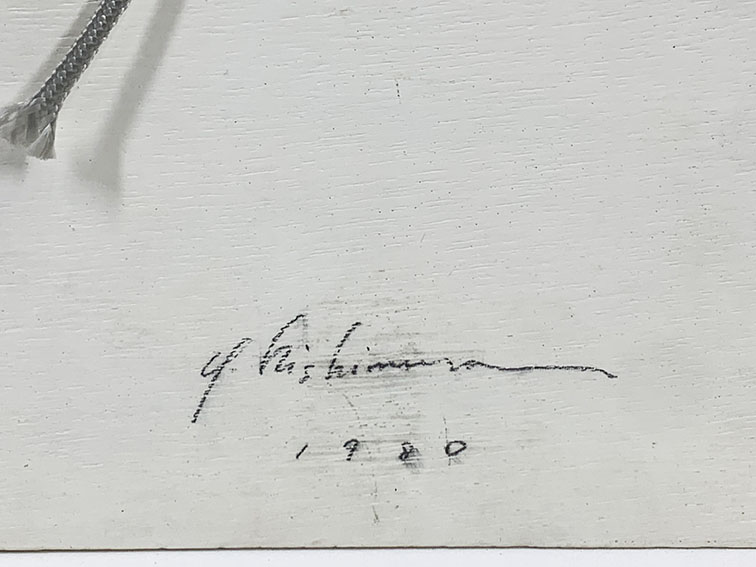 Y. Nishimura
1980